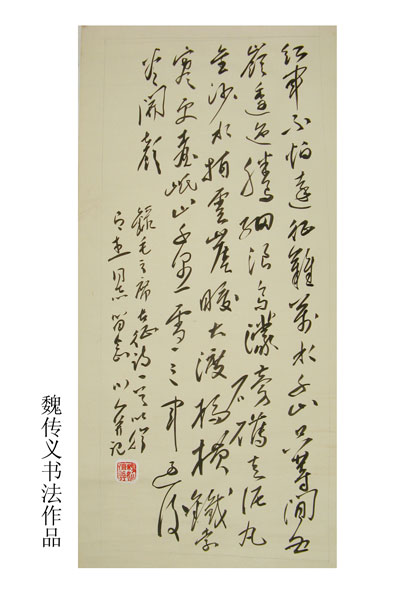 红軍不怕遠征難萬水千山只等閒五
嶺逶迤騰細浪烏濛磅礴走泥丸
金沙水拍雲崖暖大渡橋橫鐵索
寒更喜岷山千里雪三軍過後
尽開顏
錄毛主席長征詩一首以贈
同志留念
魏传义书法作品